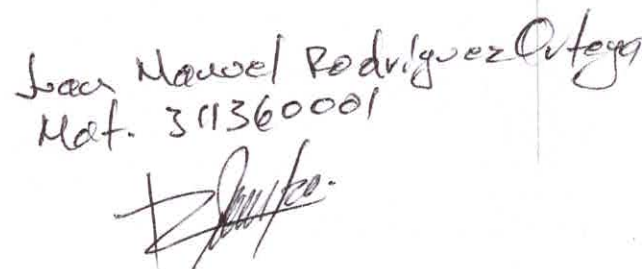 Juan Manuel Rodríguez Ortega
Mat. 311360001